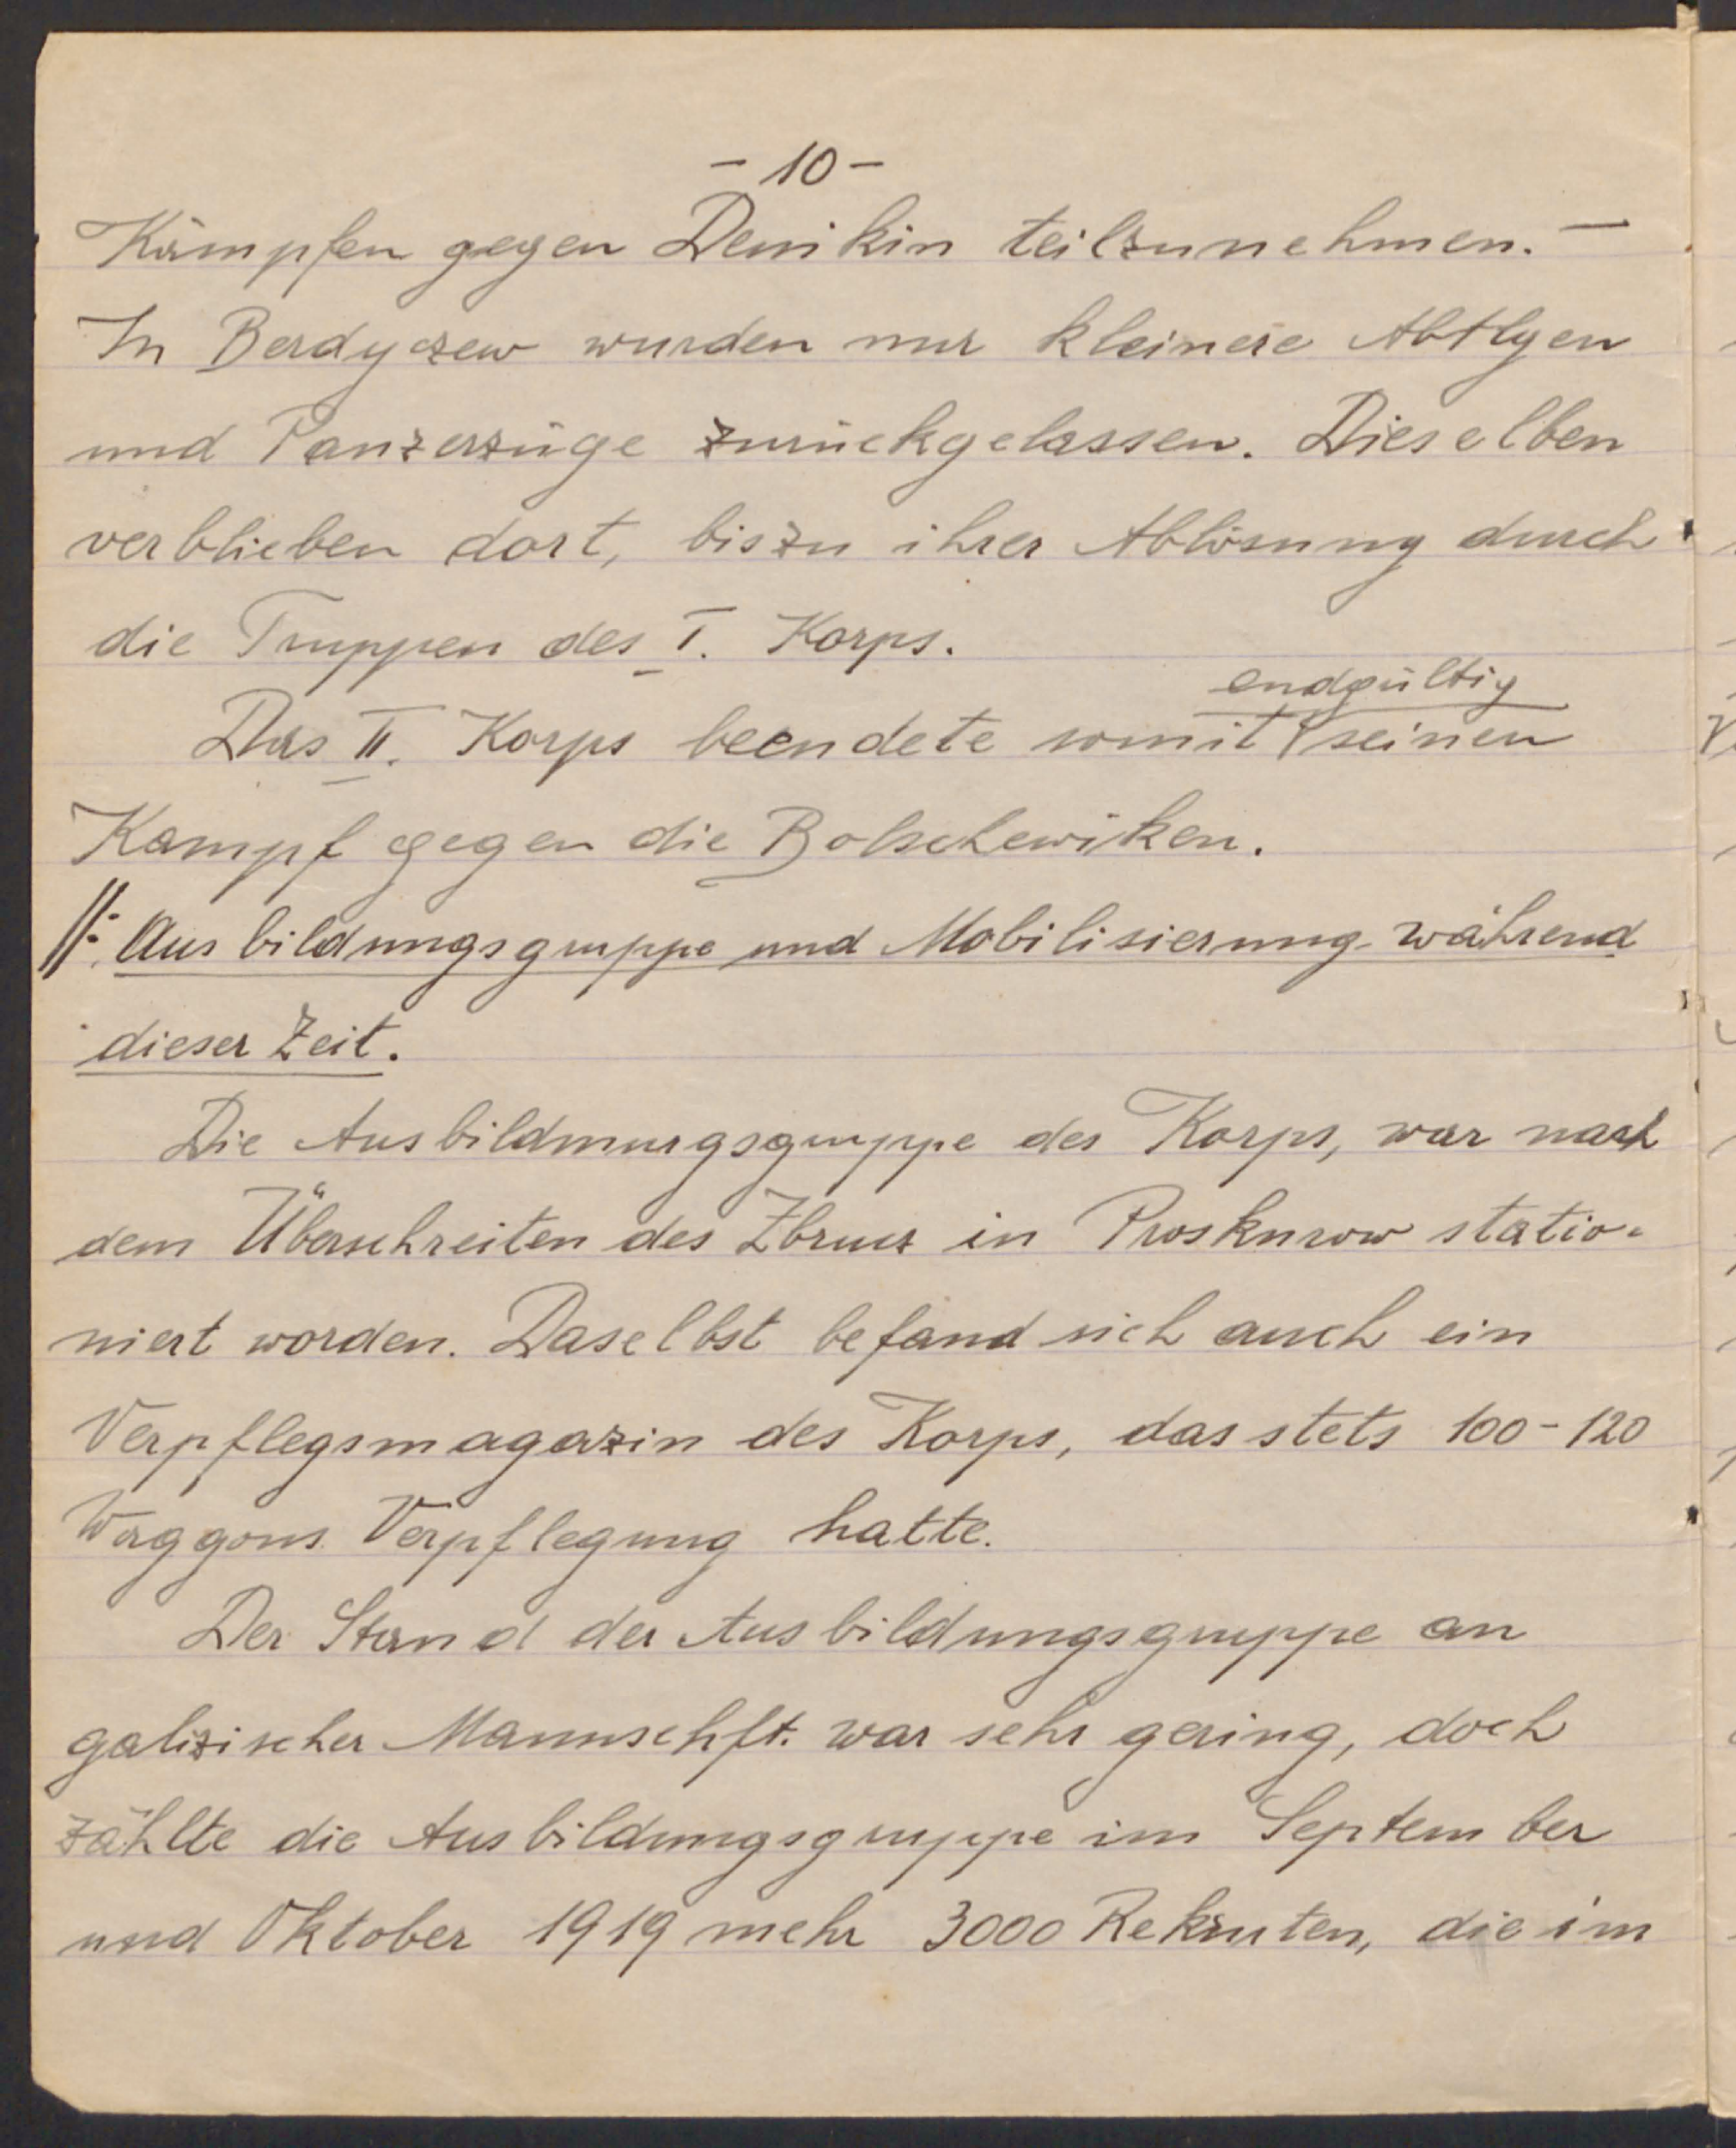 - 10 -
Kämpfen gegen Denikin teilzunehmen. -
In Berdyczew wurden nur kleinere Abtlgen
und Panzerzüge zurückgelassen. Dieselben
verblieben dort, bis zu ihrer Ablösung durch
die Truppen des I. Korps.
endgültig
Das II. Korps beendete somit seinen
Kampf gegen die Bolschewiken.
Ausbildungsgruppe und Mobilisierung während
dieser Zeit.
Die Ausbildunungsgruppe des Korps, war nach
dem Überschreiten des Zbrucz in Proskurow statio-
niert worden. Daselbst befand sich auch ein
Verpflegsmagazin des Korps, das stets 100-120
Waggons Verpflegung hatte.
Der Stand der Ausbildungsgruppe an
galizischer Mannschft. war sehr gering, doch
zählte die Ausbildungsgruppe im September
und Oktober 1919 mehr 3000 Rekruten, die im